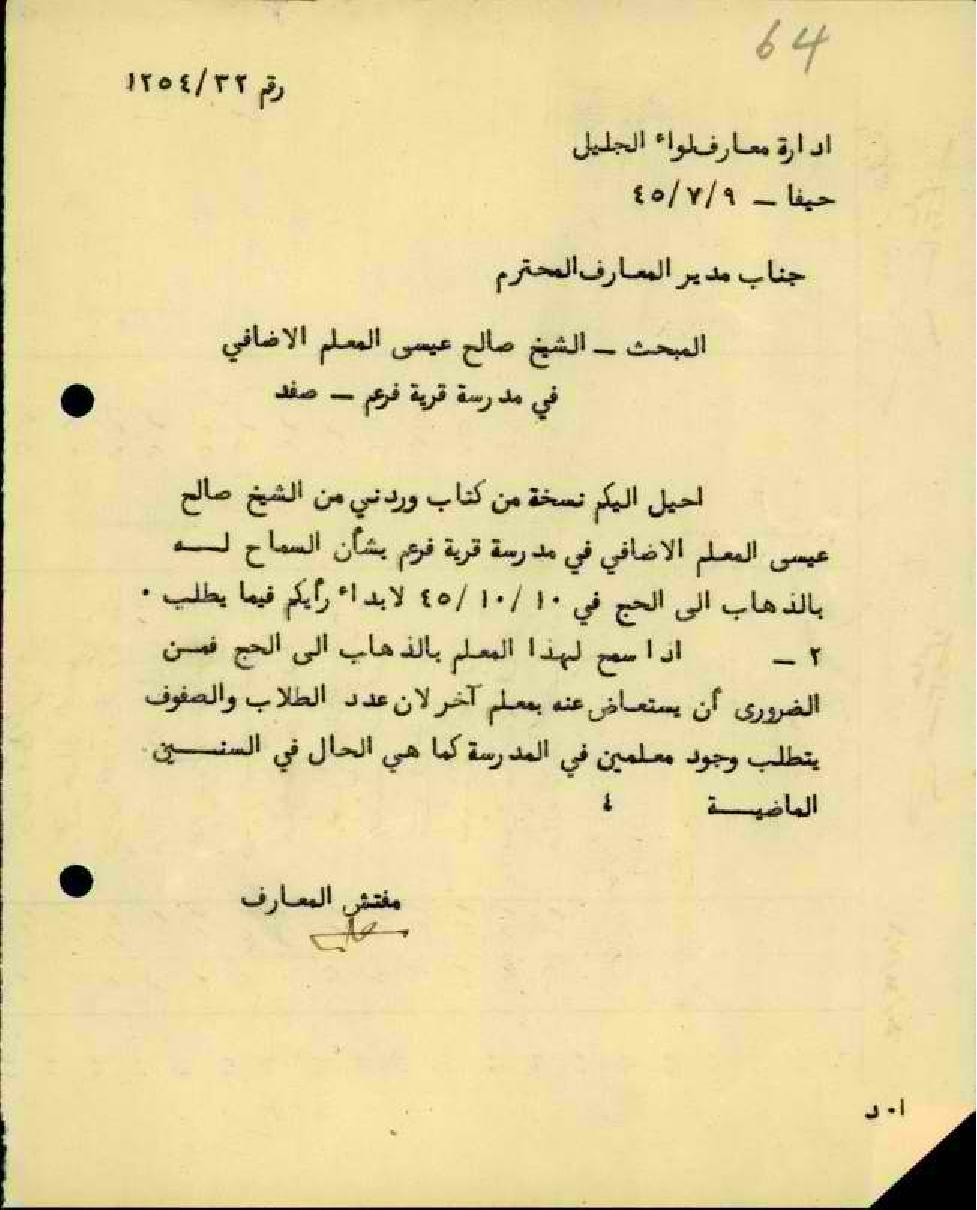 64
رقم ١٢٥٤/٣٢
ادارة معارف لواء الجليل
حيفا – ٤٥/٧/٩
جناب مدير المعارف المحترم
المبحث – الشيخ صالح عيسى المعلم الاضافي
في مدرسة قرية فرعم – صفد
احيل اليكم نسخة من كتاب وردني من الشيخ صالح
عيسى المعلم الاضافي في مدرسة قرية فرعم بشأن السماح لــه
بالذهاب الى الحج في ١٠ /١٠/ ٤٥ لابداء رأيكم فيما يطلب ٠
٢ – اذا سمح لهذا المعلم بالذهاب الى الحج فمـن
الضرورى أن يستعاض عنه بمعلم آخر لان عدد الطلاب والصفوف
يتطلب وجود معلمين في المدرسة كما هي الحال في السنـــين
الماضيـــة ٤
مفتش المعارف
ا٠ د